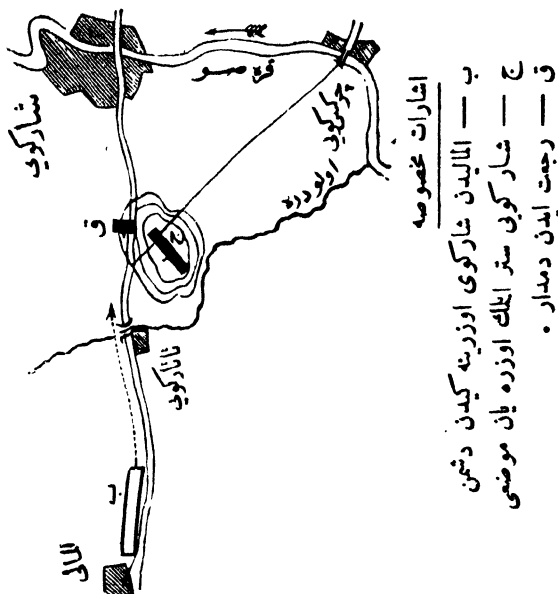 شارکویی
قره صو
چرکسکویی
اولودره
ق
ج
تاتارکویی
ب
المالی
اشارات مخصوصه
ب — المالیدن شارکوی اوزرینه کیدن دشمن
ج — شارکویی ستر ایتمك اوزره یان موضعی
ق — رجعت ایدن دمدار .